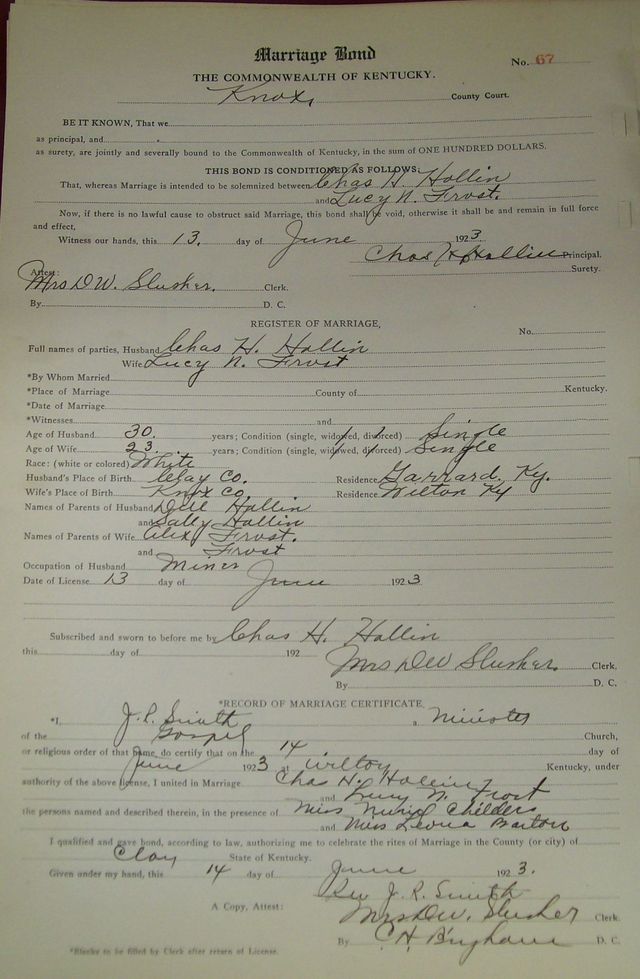 Marriage Bond
No. 67
THE COMMONWEALTH OF KENTUCKY.
Knox, County Court.
BE IT KNOWN, That we
as principal, and
as surety, are jointly and severally bound to the Commonwealth of Kentucky, in the sum of ONE HUNDRED DOLLARS.
THIS BOND IS CONDITIONED AS FOLLOWS:
That, whereas Marriage is intended to be solemnized between Chas H. Hollin
and Lucy N. Frost.
Now, if there is no lawful cause to obstruct said Marriage, this bond shall be void, otherwise it shall be and remain in full force
and effect,
Witness our hands, this 13. day of June 1923
Chas H Hollin Principal.
Attest: Surety.
Mrs DW. Slusher. Clerk.
By D. C.
REGISTER OF MARRIAGE,
No.
Full names of parties, Husband Chas H. Hollin
Wife Lucy N. Frost
*By Whom Married
*Place of Marriage County of Kentucky.
*Date of Marriage
*Witnesses and
Age of Husband 30. years; Condition (single, widowed, divorced) Single
Age of Wife 23. years; Condition (single, widowed, divorced) Single
Race: (white or colored) White
Husband's Place of Birth Clay Co. Residence Garrard, Ky.
Wife's Place of Birth Knox Co Residence Wilton Ky
Names of Parents of Husband Dill Hollin
and Sally Hollin
Names of Parents of Wife Alex Frost.
and Frost
Occupation of Husband Miner
Date of License 13 day of June 1923
Subscribed and sworn to before me by Chas H. Hollin
this day of 192
Mrs DW Slusher. Clerk.
By D. C.
*RECORD OF MARRIAGE CERTIFICATE,
*I, J. R. Smith a Minister
of the Gospel Church,
or religious order of that name, do certify that on the 14 day of
June 1923 at Wilton Kentucky, under
authority of the above license, I united in Marriage Chas H. Hollin
and Lucy N. Frost
the persons named and described therein, in the presence of Miss Muriel Childers
and Miss Leona Barton
I qualified and gave bond, according to law, authorizing me to celebrate the rites of Marriage in the County (or city) of
Clay State of Kentucky.
Given under my hand, this 14 day of June 1923.
Rev J. R. Smith
A Copy, Attest: Mrs DW. Slusher Clerk.
By C. H. Bingham D. C.
*Blanks to be filled by Clerk after return of License.